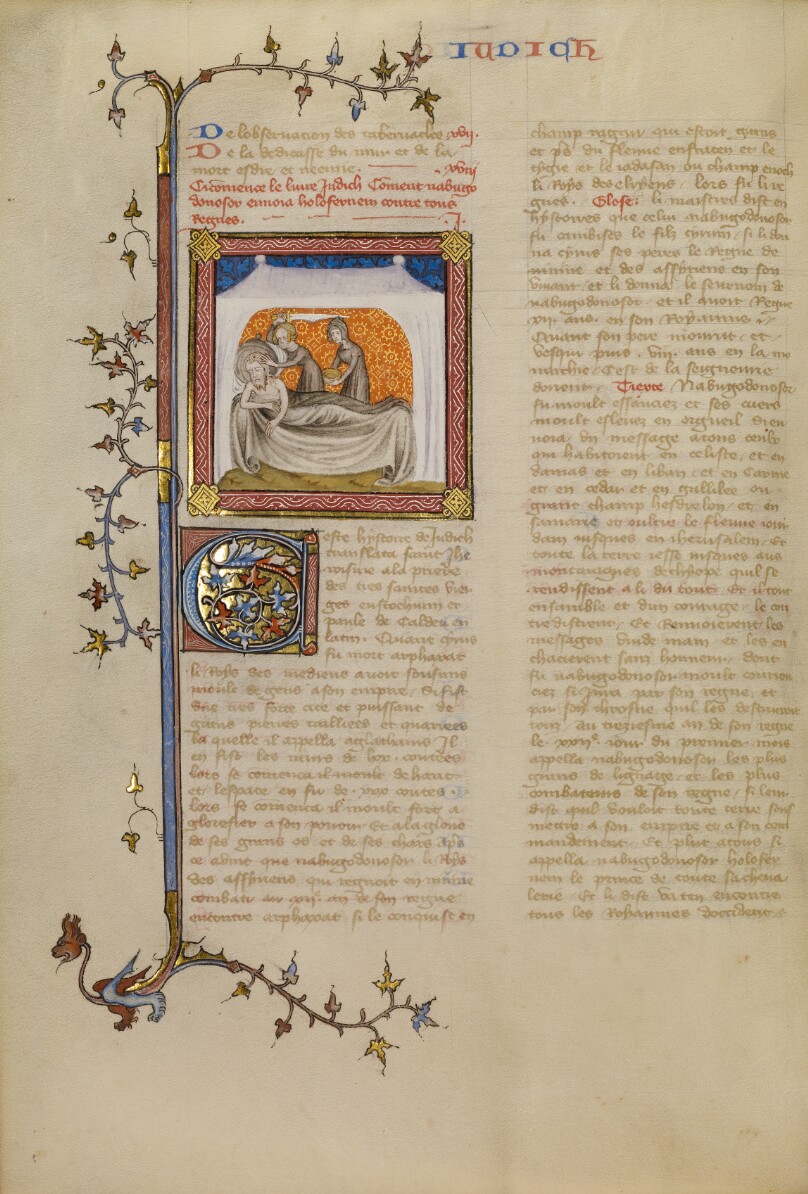 IUDICH
De lobseruation des tabernacles xvij.
De la dedicasse du mur et de la
mort esdre et neemie. xviij
Ci comence le liure Judich Coment nabugo
donosor enuoia holofernem contre tous
Regnes. .j.
Ceste hystoire de Judich
translata saint Jhe
roisme a la priere
des tres saintes vier
ges eustochium et
paule de Caldeu en
latin. Quant cyrus
fu mort arphaxat
li Roys des mediens auoit sousmis
moult de gens a son empire. Si fist
une tres fort cite et puissant de
grans pierres tailliees et quarrees
la quelle il appella egbathanis Il
en fist les murs de lxx. coutees
lors se comenca il moult de haut
et lespace en fu de .xxx coutes.
Lors se comenca il moult fort a
glorefier a son pouoir Et a la gloire
de ses grans os et de ses chars apres
ce auint que nabugodonosor li Roys
des assyriens qui regnoit en niniue
combati au xij. an de son regne
encontre arphaxat si le conquist en
champ ragau qui estoit grans
et pres du fleuue eufraten et le
tygre et le iadason ou champ enoch
li Roys des elyciens. lors fu li re
gnes. Glose. li maistres dist en
hystoires que celui nabugodonosor
fu cambises le filz cyrum si li don
na cyrus ses peres le Regne de
niniue et des assyriens en son
viuant et li donna le seurnom de
nabugodonosor et il auoit Regne
xij. ans en son Royaume
Quant son pere mourut et
vesqui puis .viij. ans en la mo
narchie Cest de la seignourie
dorient. Tierce Nabugodonosor
fu moult essauciez et ses cuers
moult esleuez en orgueil Si en
uoia un message a tous ceulz
qui habitoient en celiste et en
damas et en liban et en Carme
et en cedar et en gallilee ou
grant champ hesdrelon et en
samarie et oultre le fleuue iour
dam iusques en iherusalem Et
toute la terre iesse iusques aus
montaignes dethyope quil se
rendissent a li du tout Et il tout
ensamble et dun courage le con
tredistrent. Et Renuoierent les
messages vuide main et les en
chacierent sanz honneur dont
fu nabugodonosor moult courrou
ciez si iura par son regne et
par son throsne quil les destruiroit
touz Au treziesme an de son regne
le xxije. iour du premier mois
appella nabugodonosor les plus
grans de lignaige et les plus
combateurs de son regne si leur
dist quil vouloit toute terre sous
mettre a son empire et a son com
mandement Et plut a tous si
appella nabugodonosor holofer
nem le prince de toute sa cheua
lerie Et li dist va ten encontre
tous les Royaumes doccident